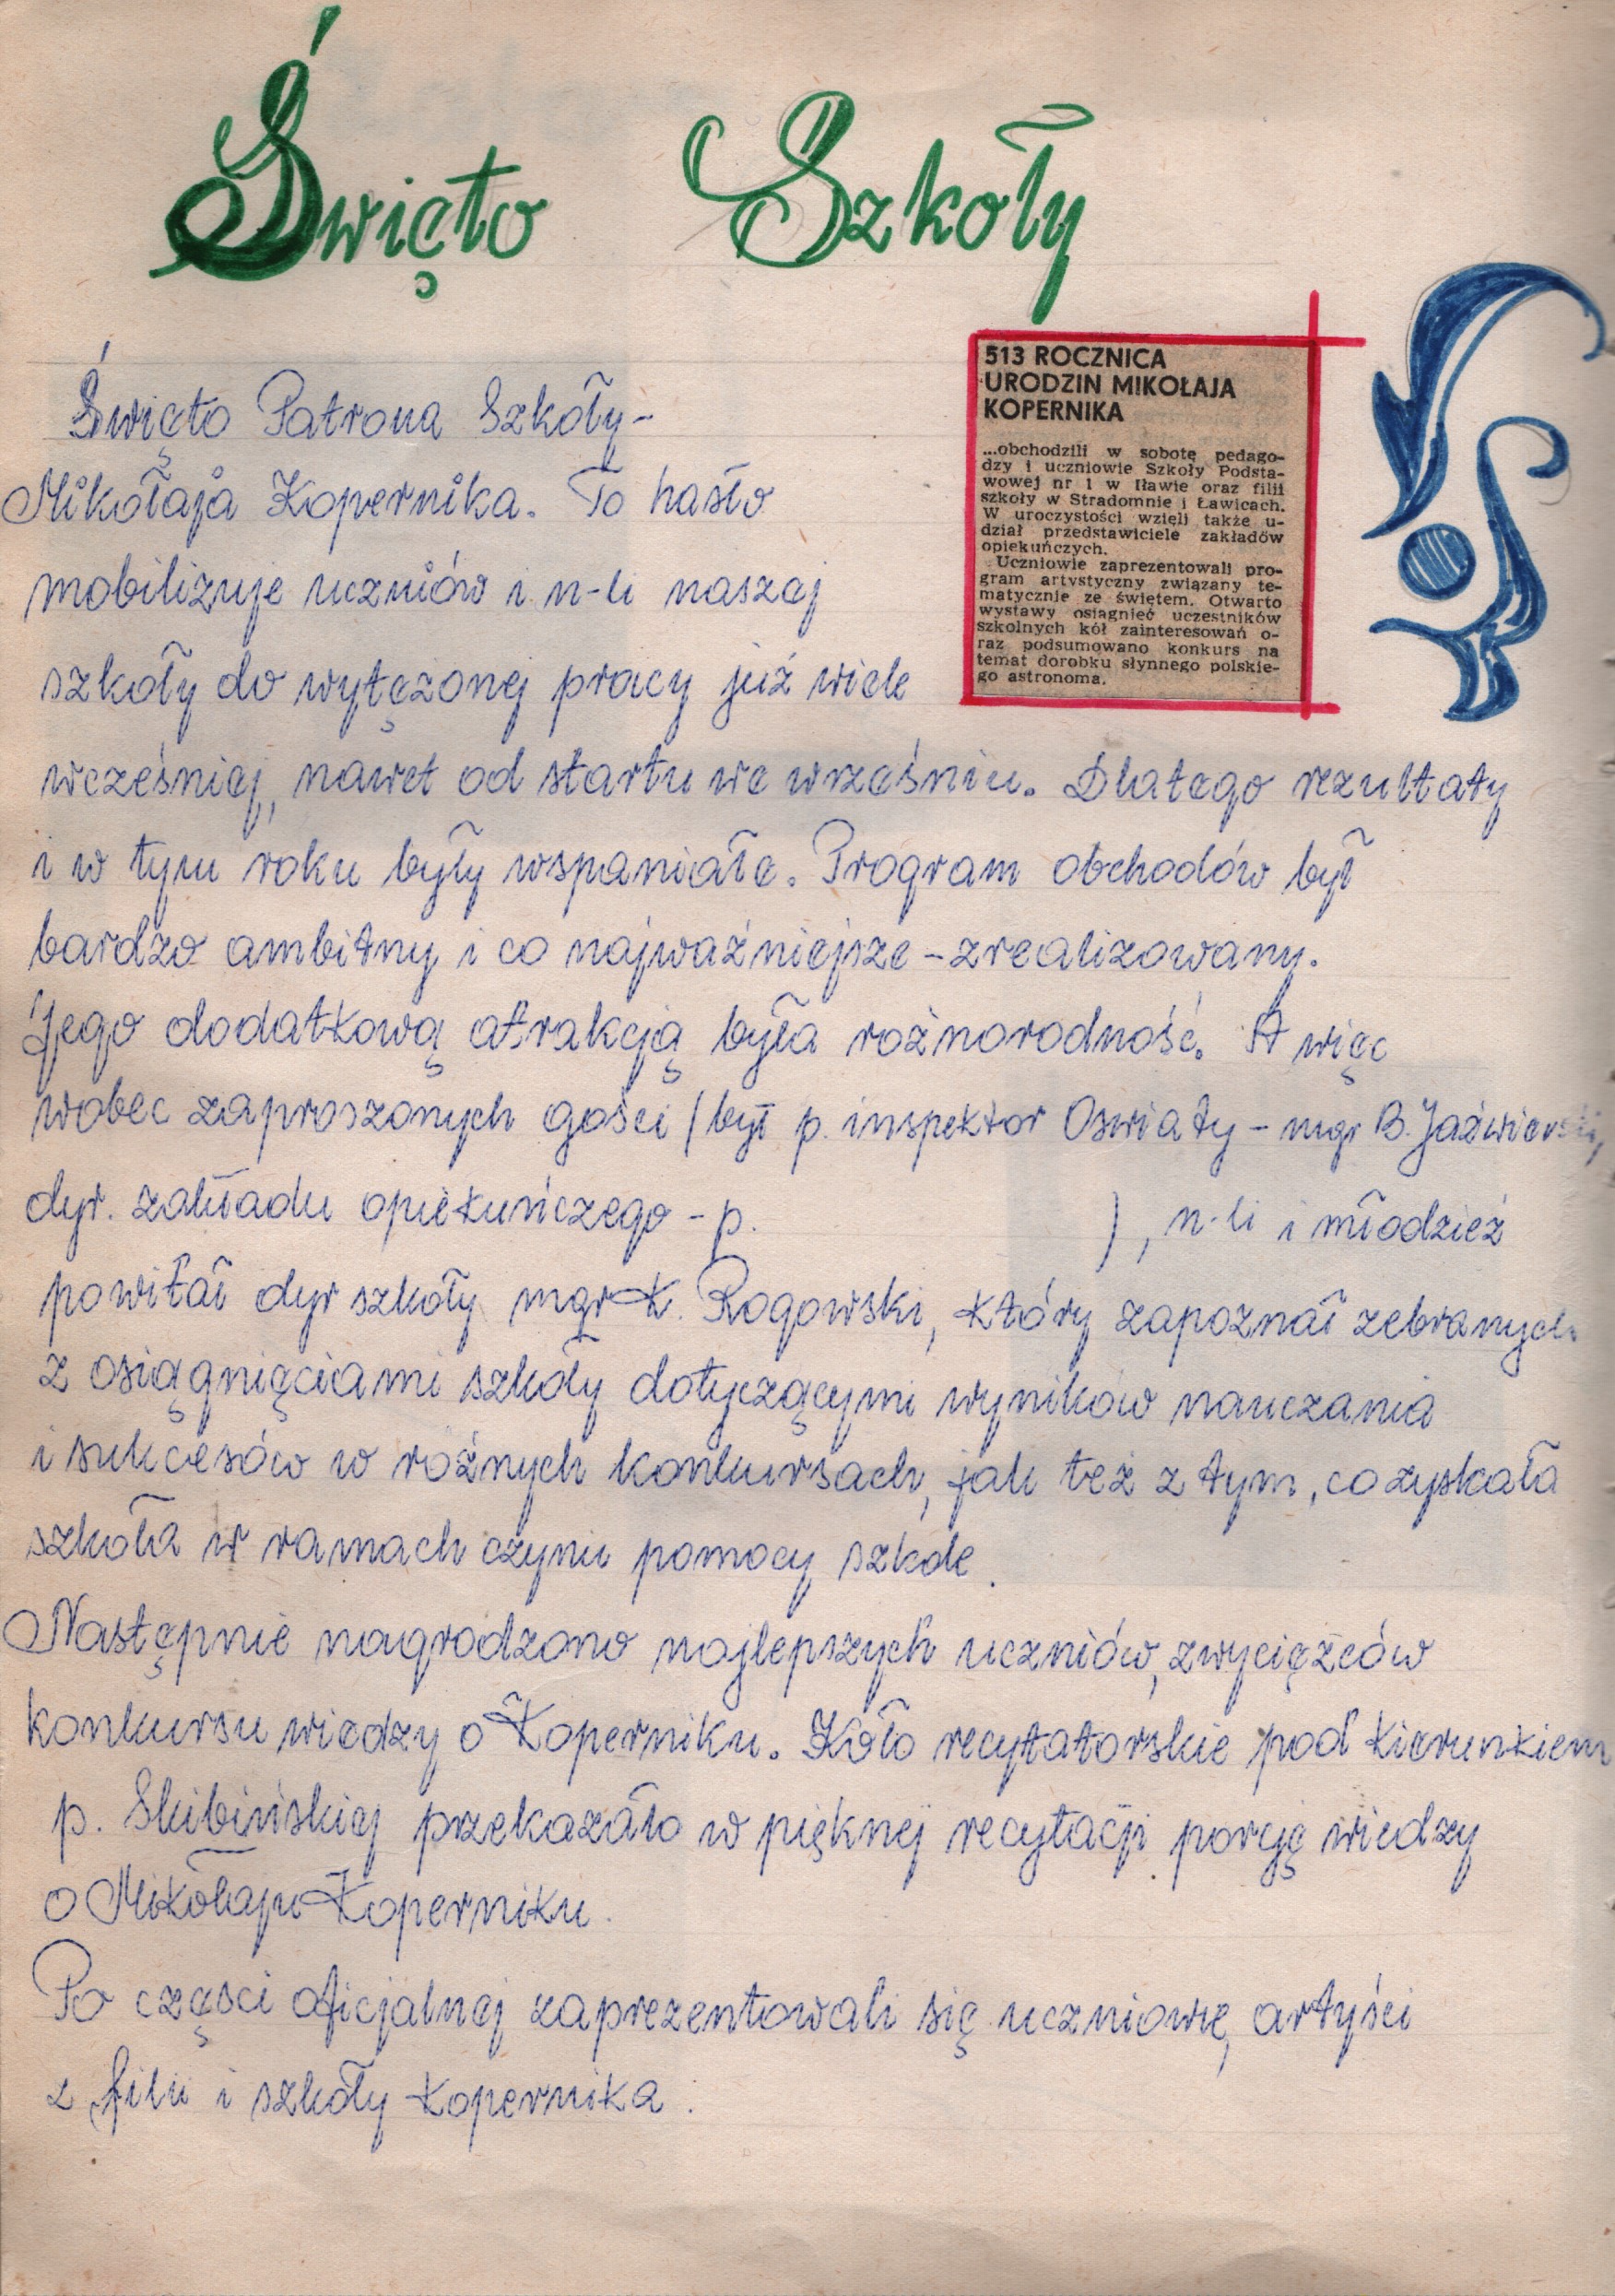 Święto Szkoły
513 ROCZNICA
URODZIN MIKOŁAJA
KOPERNIKA
...obchodzili w sobotę pedago-
dzy i uczniowie Szkoły Podsta-
wowej nr 1 w Iławie oraz filii
szkoły w Stradomnie i Ławicach.
W uroczystości wzięli także u-
dział przedstawiciele zakładów
opiekuńczych.
Uczniowie zaprezentowali pro-
gram artystyczny związany te-
matycznie ze świętem. Otwarto
wystawy osiągnięć uczestników
szkolnych kół zainteresowań o-
raz podsumowano konkurs na
temat dorobku słynnego polskie-
go astronoma.
Święto Patrona Szkoły-
Mikołaja Kopernika. To hasło
mobilizuje uczniów i n-li naszej
szkoły do wytężonej pracy już wiele
wcześniej, nawet od startu we wrześniu. Dlatego rezultaty
i w tym roku były wspaniałe. Program obchodów był
bardzo ambitny i co najważniejsze - zrealizowany.
Jego dodatkową atrakcją była różnorodność. A więc
wobec zaproszonych gości (był p. inspektor Oświaty - mgr B. Jaźwierski,
dyr. zakładu opiekuńczego - p. ), n-li i młodzież
powitał dyr szkoły mgr K. Rogowski, który zapoznał zebranych
z osiągnięciami szkoły dotyczącymi wyników nauczania
i sukcesów w różnych konkursach, jak też z tym, co zyskała
szkoła w ramach czynu pomocy szkole.
Następnie nagrodzono najlepszych uczniów, zwycięzców
konkursu wiedzy o Koperniku. Koło recytatorskie pod kierunkiem
p. Skibińskiej przekazało w pięknej recytacji porcję wiedzy
o Mikołaju Koperniku.
Po części oficjalnej zaprezentowali się uczniowie, artyści
z filii i szkoły Kopernika.